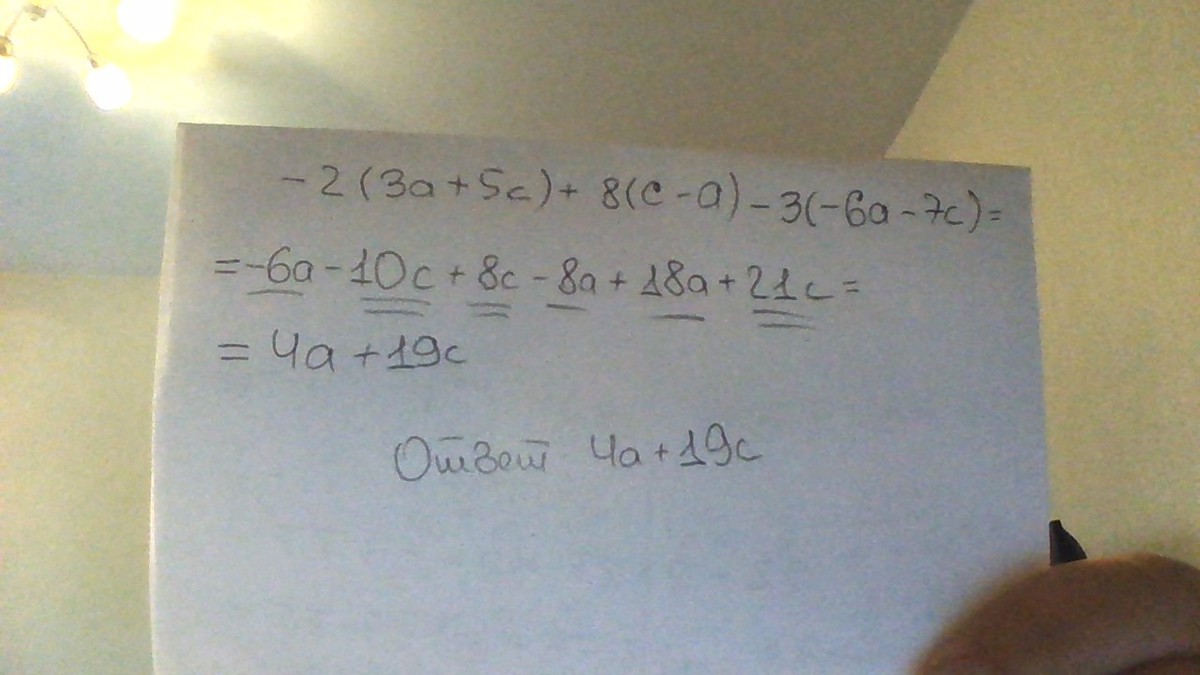 -2(3a+5c)+8(c-a)-3(-6a-7c)=
=-6a-10c+8c-8a+18a+21c=
=4a+19c
Ответ 4a+19c